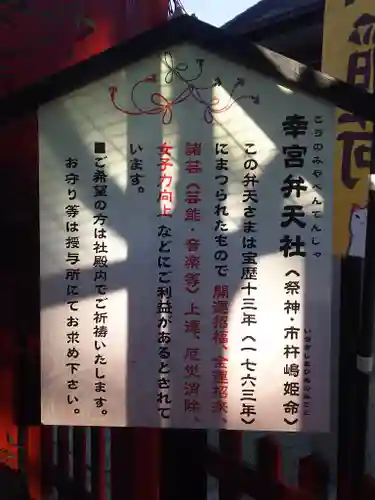 幸宮弁天社（祭神・市杵嶋姫命）
こうのみやべんてんしゃ
いちきしまひめのみこと
この弁天さまは宝歴十三年（一七六三年）
にまつられたもので 開運招福、金運招来、
諸芸（芸能・音楽等）上達、厄災消除、
女子力向上 などにご利益があるとされて
います。
■ご希望の方は社殿内でご祈祷いたします。
お守り等は授与所にてお求め下さい。
稲荷